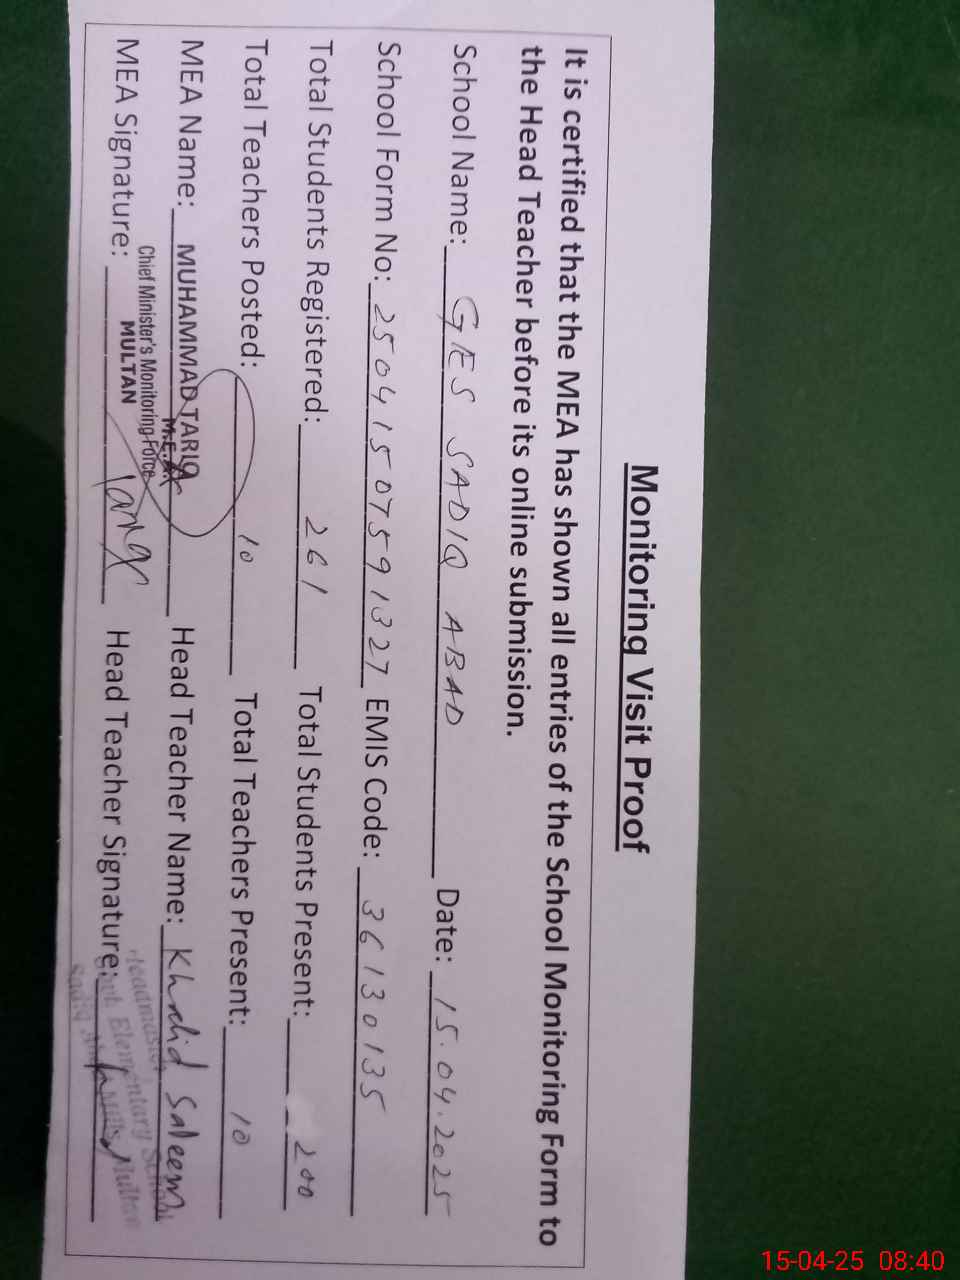 Monitoring Visit Proof
It is certified that the MEA has shown all entries of the School Monitoring Form to
the Head Teacher before its online submission.
School Name: GES SADIQ ABAD Date: 15.04.2025
School Form No: 25041507591327 EMIS Code: 36130135
Total Students Registered: 261 Total Students Present: 200
Total Teachers Posted: 10 Total Teachers Present: 10
MEA Name: MUHAMMAD TARIQ Head Teacher Name: Khalid Saleem
M.E.A
Chief Minister's Monitoring Force
MULTAN
MEA Signature: Tariq Head Teacher Signature:
Headmaster
Govt. Elementary School
Multan
15-04-25 08:40